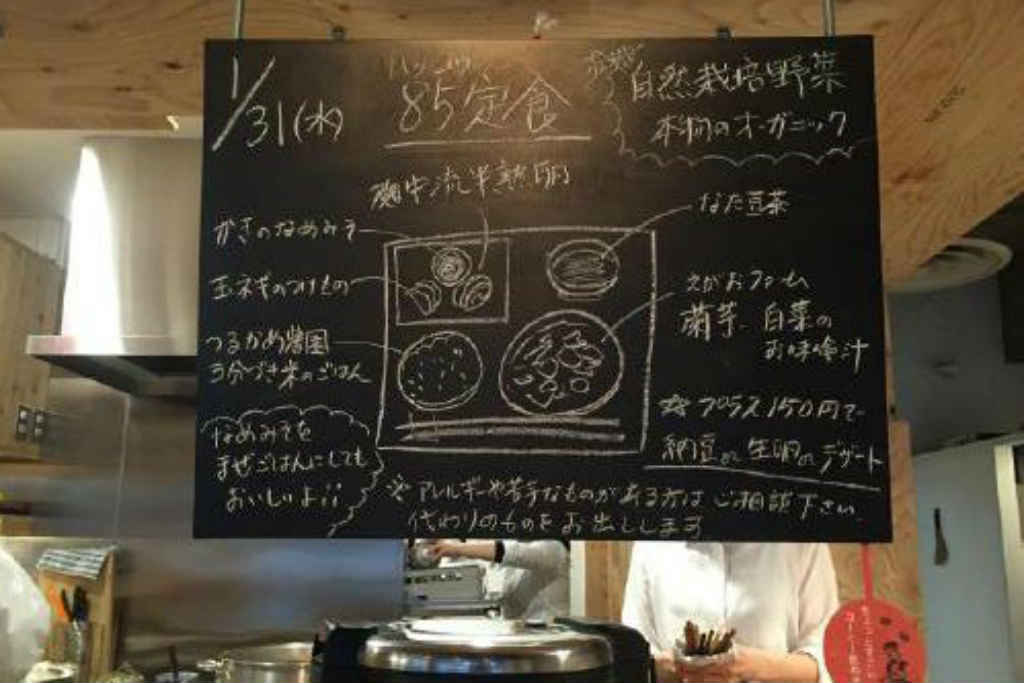 1/31(水)
85定食
自然栽培野菜
本物のオーガニック
磯牛流半熟卵
なた豆茶
かきのなめみそ
玉ネギのつけもの
えがおファーム
菊芋、白菜の
お味噌汁
つるかめ農園
3分づき米のごはん
なめみそを
まぜごはんにしても
おいしいよ!!
☆プラス150円で
納豆or生卵orデザート
※アレルギーや苦手なものがある方はご相談下さい。
代わりのものをお出しします